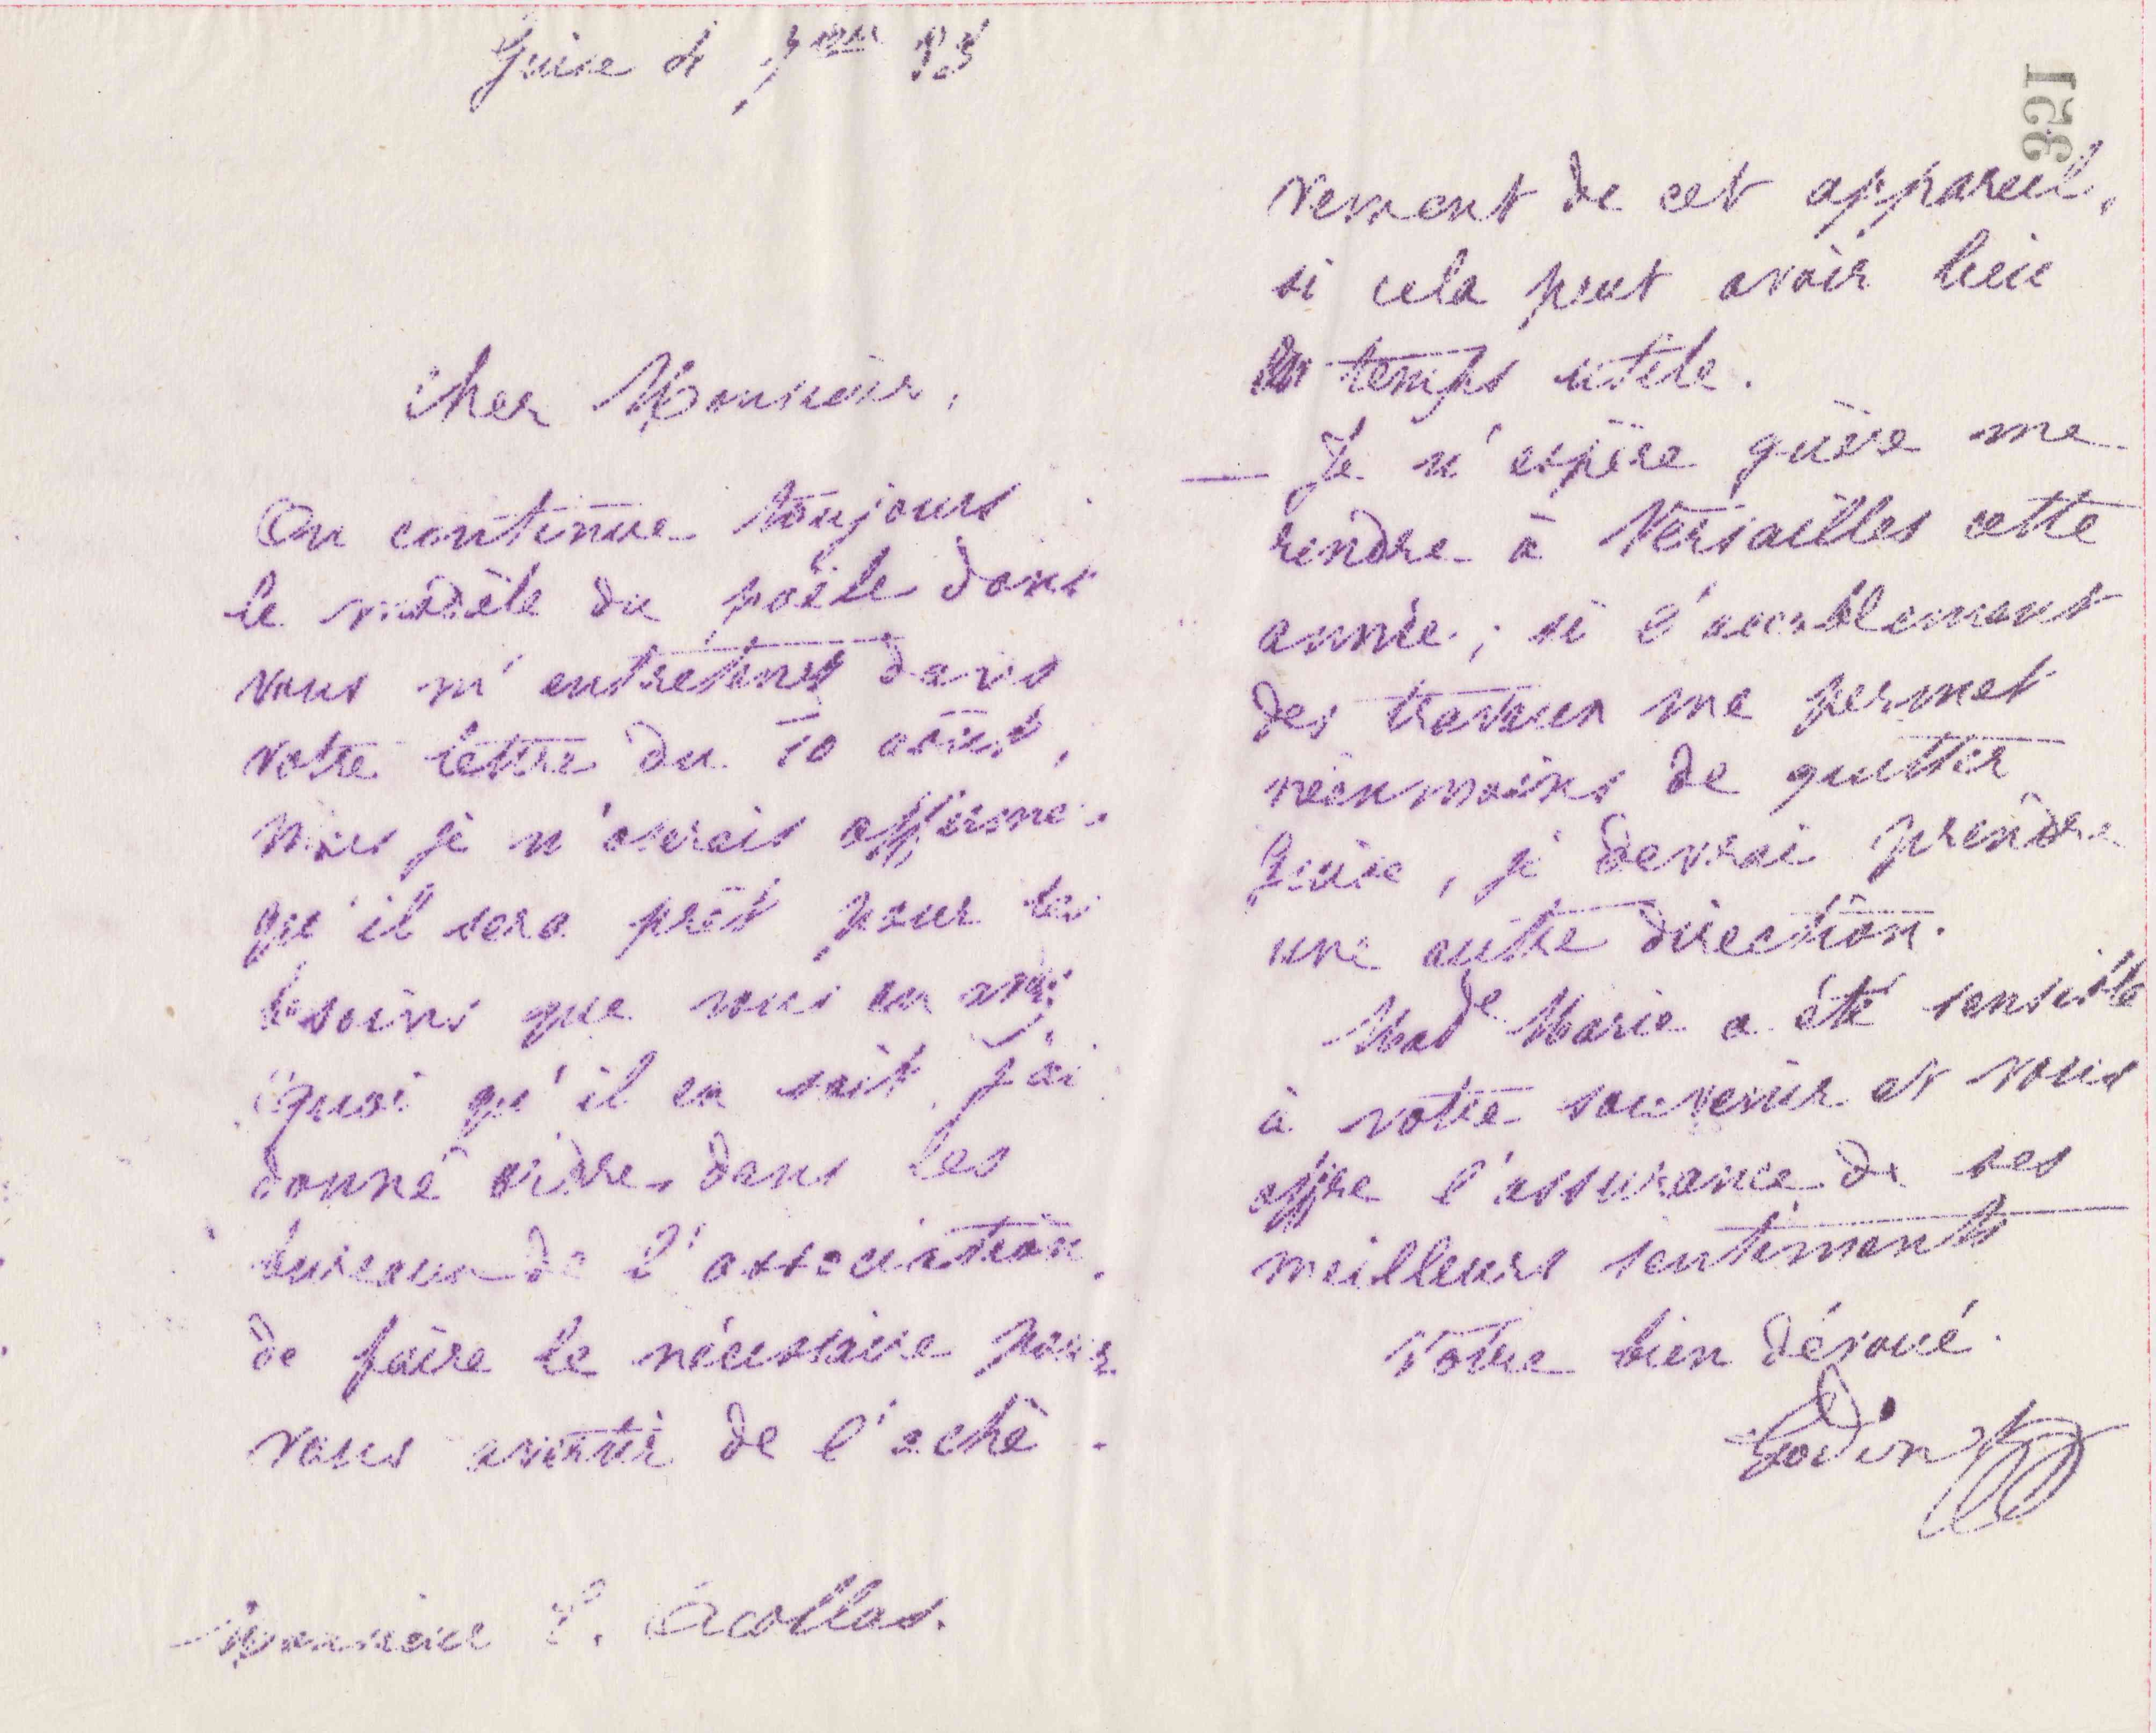 Guise 4 7bre 83
Cher Monsieur,
On continue toujours
le modèle du poêle dont
vous m'entretenez dans
votre lettre du 10 août,
mais je n'oserais affirmer
qu'il sera prêt pour les
besoins que vous en avez
Quoi qu'il en soit j'ai
donné ordre dans les
bureaux de l'association
de faire le nécessaire pour
vous avertir de l'achè-
Monsieur E. Acollas.
351
vement de cet appareil,
si cela peut avoir lieu
en temps utile.
— Je n'espère guère me
rendre à Versailles cette
année; si l'accablement
des travaux me permet
néanmoins de quitter
Guise, je devrai prendre
une autre direction.
Made Marie a été sensible
à votre souvenir et vous
offre l'assurance de ses
meilleurs sentiments
Votre bien dévoué.
Godin